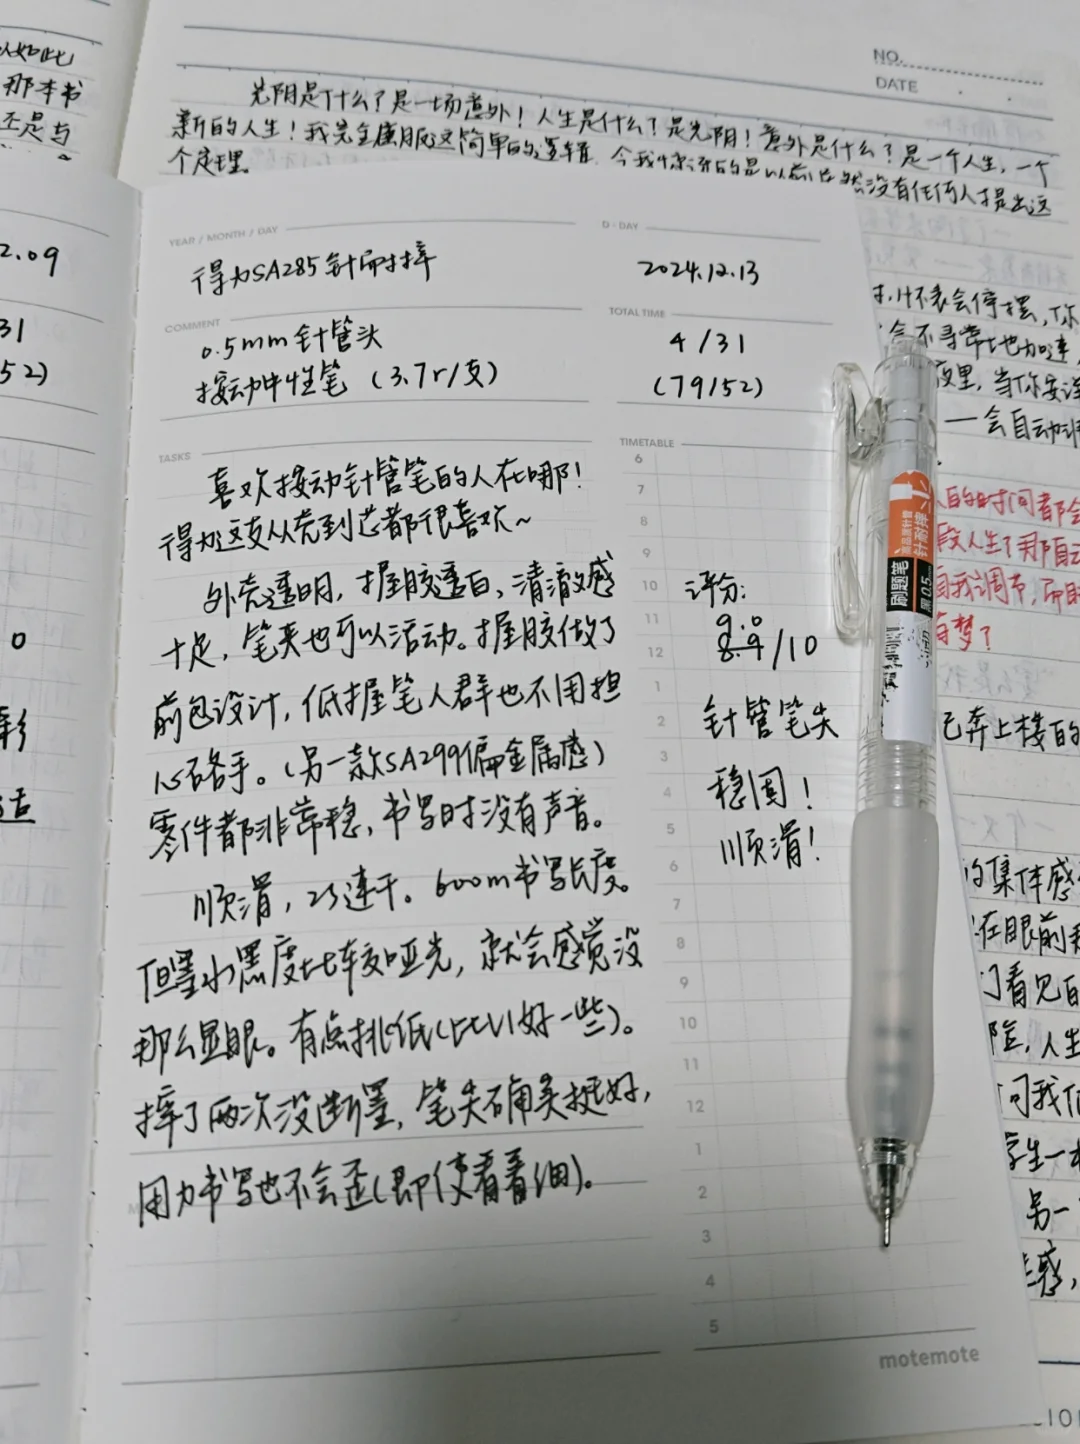 以如此
那本书
还是与
NO.
DATE
光阴是什么？是一场意外！人生是什么？是光阴！意外是什么？是一个人生，一个
新的人生！我完全屈服这简单的逻辑，令我惊讶的是以前居然没有任何人提出这
个定理。
2.09
31
52)
YEAR / MONTH / DAY
得力SA285针耐摔
D-DAY
2024.12.13
COMMENT
0.5mm针管头
按动中性笔（3.7r/支）
TOTAL TIME
4/31
(79/52)
TASKS
喜欢按动针管笔的人在哪！
得力这支从壳到芯都很喜欢~
外壳透明，握胶透白，清澈感
十足，笔夹也可以活动。握胶做了
前包设计，低握笔人群也不用担
心硌手。(另一款SA299偏金属感)
零件都非常稳，书写时没有声音。
顺滑，2s速干。600m书写长度。
但墨水黑度比较哑光，就会感觉没
那么显眼。有点挑纸(比V1好一些)。
摔了两次没断墨，笔尖确实挺好，
用力书写也不会歪(即使看着细)。
TIMETABLE
6
7
8
9
10
11
12
1
2
3
4
5
6
7
8
9
10
11
12
1
2
3
4
5
评分:
9.0
8.9/10
针管笔尖
稳固！
顺滑！
motemote
针耐摔
刷题笔
黑0.5
会停摆，你
不寻常地加速，
夜里，当你
一会自动
人的时间都会
段人生了那自
自我调节，而
梦了
己奔上楼的
的集体感
在眼前
门看见自
险，人生
问我们
学生一
另一
感，
101